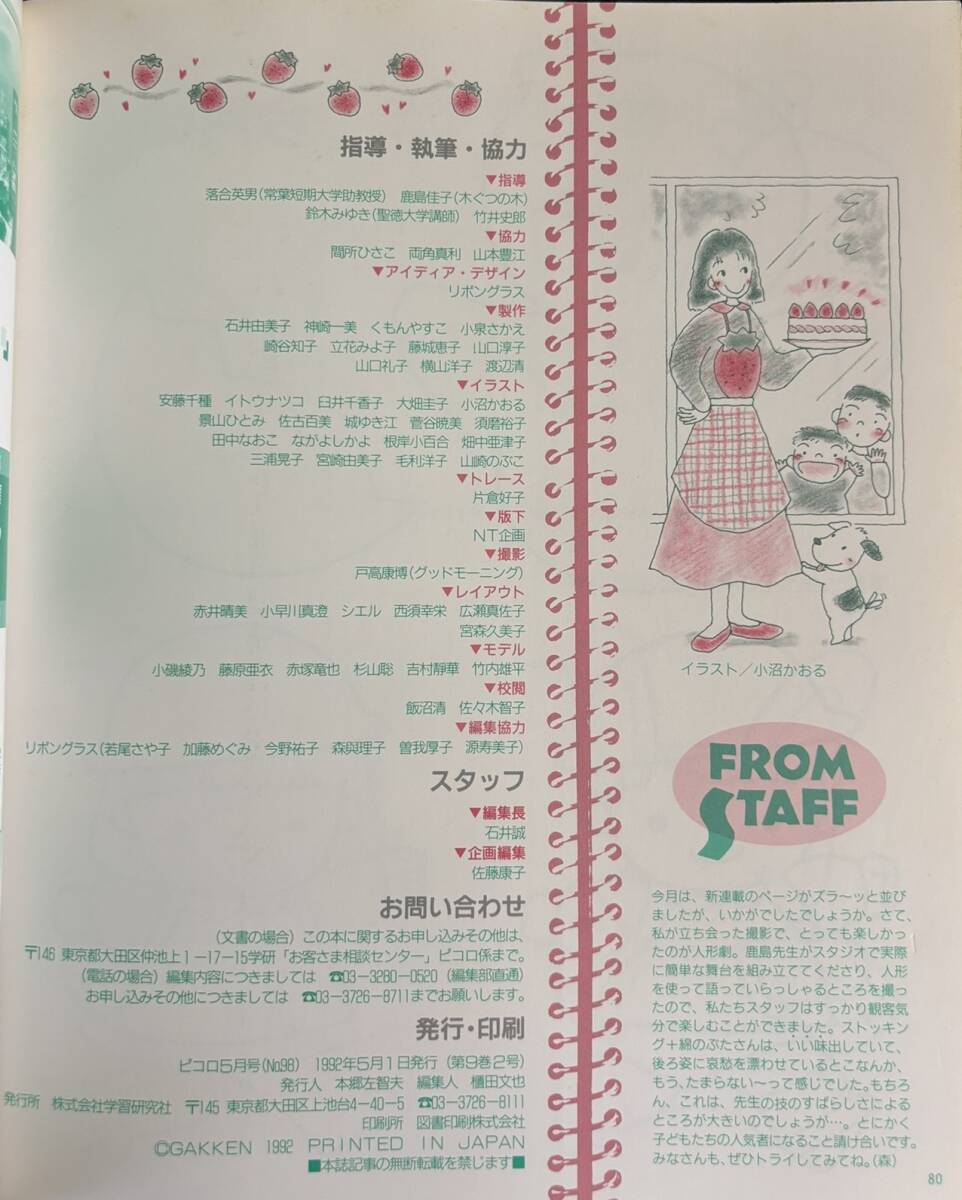 指導・執筆・協力
▼指導
落合英男(常葉短期大学助教授) 鹿島佳子(木ぐつの木)
鈴木みゆき(聖徳大学講師) 竹井史郎
▼協力
間所ひさこ 両角真利 山本豊江
▼アイディア・デザイン
リボングラス
▼製作
石井由美子 神崎一美 くもんやすこ 小泉さかえ
崎谷知子 立花みよ子 藤城恵子 山口淳子
山口礼子 横山洋子 渡辺清
▼イラスト
安藤千種 イトウナツコ 臼井千香子 大畑圭子 小沼かおる
景山ひとみ 佐古百美 城ゆき江 菅谷暁美 須磨裕子
田中なおこ ながよしかよ 根岸小百合 畑中亜津子
三浦晃子 宮崎由美子 毛利洋子 山崎のぶこ
▼トレース
片倉好子
▼版下
NT企画
▼撮影
戸高康博(グッドモーニング)
▼レイアウト
赤井晴美 小早川真澄 シエル 西須幸栄 広瀬真佐子
宮森久美子
▼モデル
小磯綾乃 藤原亜衣 赤塚竜也 杉山聡 吉村靜華 竹内雄平
▼校閲
飯沼清 佐々木智子
▼編集協力
リボングラス(若尾さや子 加藤めぐみ 今野祐子 森與理子 曽我厚子 源寿美子)
スタッフ
▼編集長
石井誠
▼企画編集
佐藤康子
お問い合わせ
(文書の場合)この本に関するお申し込みその他は、
〒146 東京都大田区仲池上1-17-15学研「お客さま相談センター」ピコロ係まで。
(電話の場合)編集内容につきましては ☎03-3280-0520(編集部直通)
お申し込みその他につきましては ☎03-3726-8711までお願いします。
発行・印刷
ピコロ5月号(No98) 1992年5月1日発行(第9巻2号)
発行人 本郷左智夫 編集人 櫃田文也
発行所 株式会社学習研究社 〒145 東京都大田区上池台4-40-5 ☎03-3726-8111
印刷所 図書印刷株式会社
©GAKKEN 1992 PRINTED IN JAPAN
■本誌記事の無断転載を禁じます■
イラスト/小沼かおる
FROM
STAFF
今月は、新連載のページがズラ〜ッと並び
ましたが、いかがでしたでしょうか。さて、
私が立ち会った撮影で、とっても楽しかっ
たのが人形劇。鹿島先生がスタジオで実際
に簡単な舞台を組み立ててくださり、人形
を使って語っていらっしゃるところを撮っ
たので、私たちスタッフはすっかり観客気
分で楽しむことができました。ストッキン
グ+綿のぶたさんは、いい味出していて、
後ろ姿に哀愁を漂わせているとこなんか、
もう、たまらない〜って感じでした。もちろ
ん、これは、先生の技のすばらしさによる
ところが大きいのでしょうが…。とにかく
子どもたちの人気者になること請け合いです。
みなさんも、ぜひトライしてみてね。(森)
80